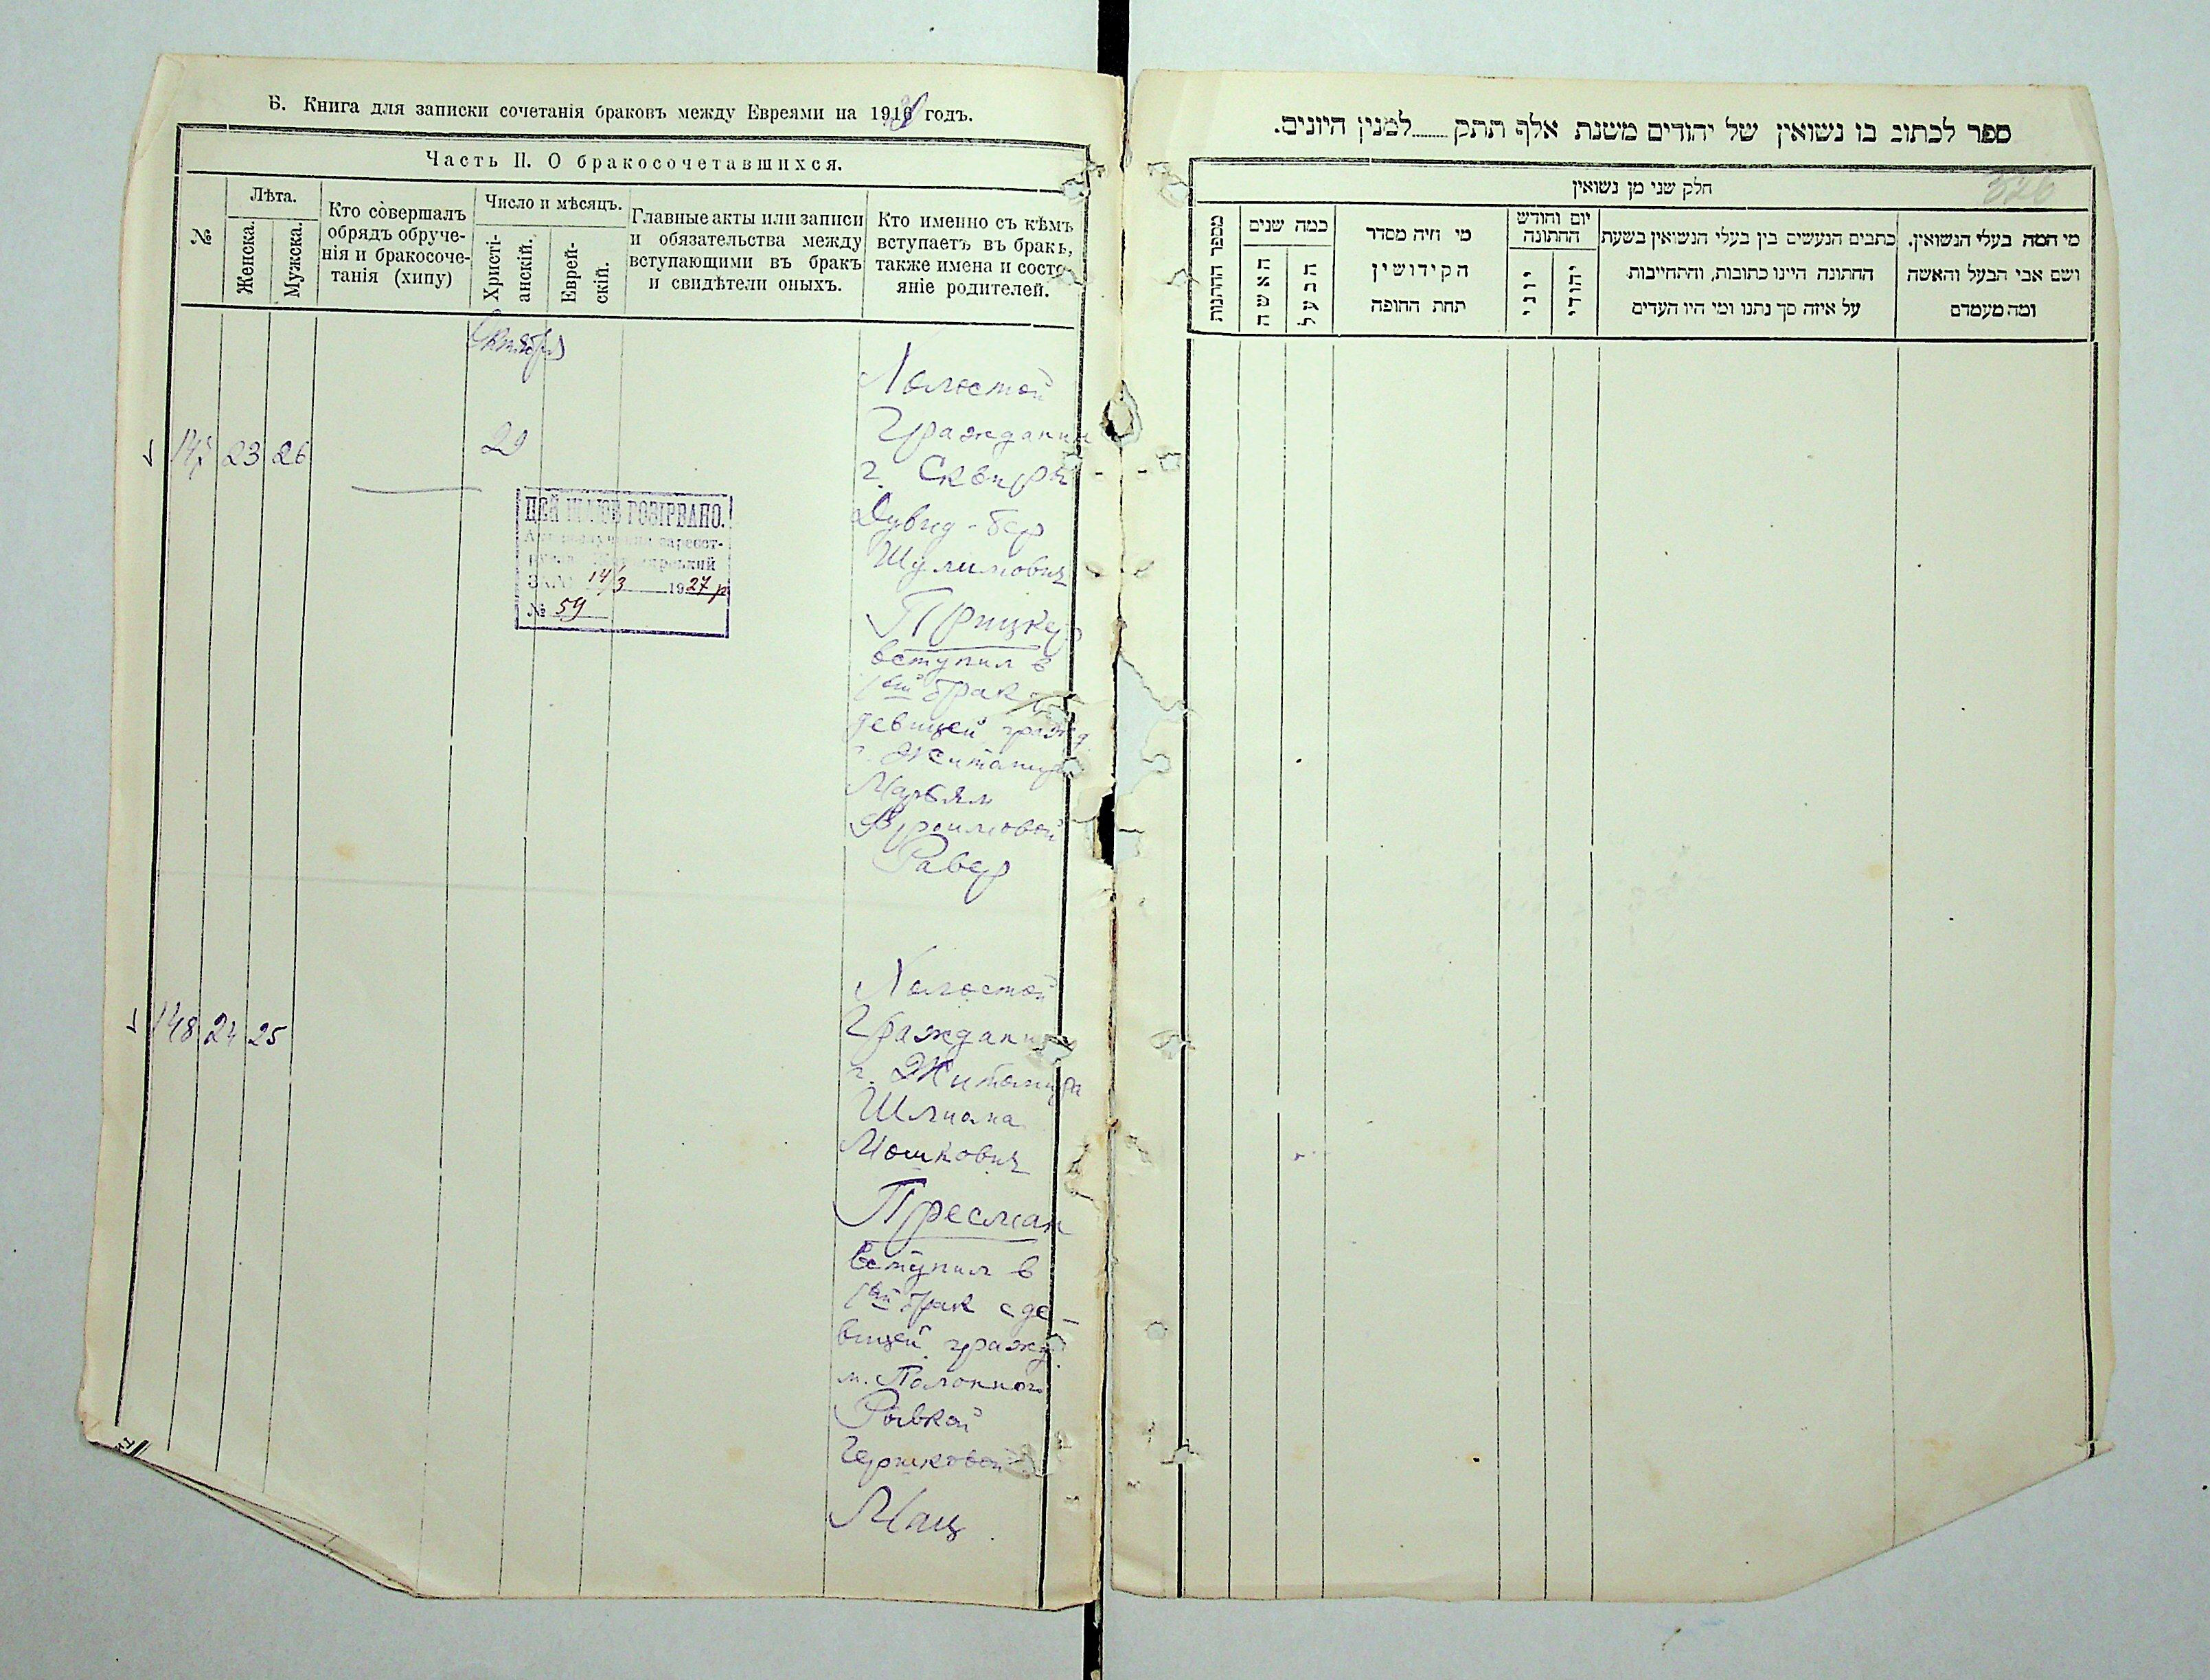 Б. Книга для записки сочетанія браковъ между Евреями на 191 годъ.
Часть II. О бракосочетавшихся.
№
Лѣта.
Женска.
Мужска.
Кто совершалъ
обрядъ обруче-
нія и бракосоче-
танія (хипу)
Число и мѣсяцъ.
Христі-
анскій.
Еврей-
скій.
Главные акты или записи
и обязательства между
вступающими въ бракъ
и свидѣтели оныхъ.
Кто именно съ кѣмъ
вступаетъ въ бракъ,
также имена и состо-
яніе родителей.
Октября
147 23 26
29
Холостой
Гражданин
г. Сквиры
Дувид-бер
Шулимович
Прицкер
вступил в
1ый брак
девицей гражд.
г. Житомира
Марьям
Фроимовой
Равер
ЦЕЙ ШЛЮБ РОЗІРВАНО.
зареест-
14/3 1927 р
№ 59
148 24 25
Холостой
Гражданин
г. Житомира
Шлиома
Мошкович
Пресман
вступил в
1ый брак с де-
вицей гражд.
м. Полонного
Ривкой
Гершковой
Мац
ספר לכתוב בו נשואין של יהודים משנת אלף תתק........למנין היונים.
חלק שני מן נשואין
מספר החתנות
כמה שנים
האשה
הבעל
מי היה מסדר
הקידושין
תחת החופה
יום וחודש
החתונה
יוני
יהודי
כתבים הנעשים בין בעלי הנשואין בשעת
החתונה היינו כתובות, והתחייבות
על איזה סך נתנו ומי היו העדים
מי המה בעלי הנשואין,
ושם אבי הבעל והאשה
ומה מעמדם